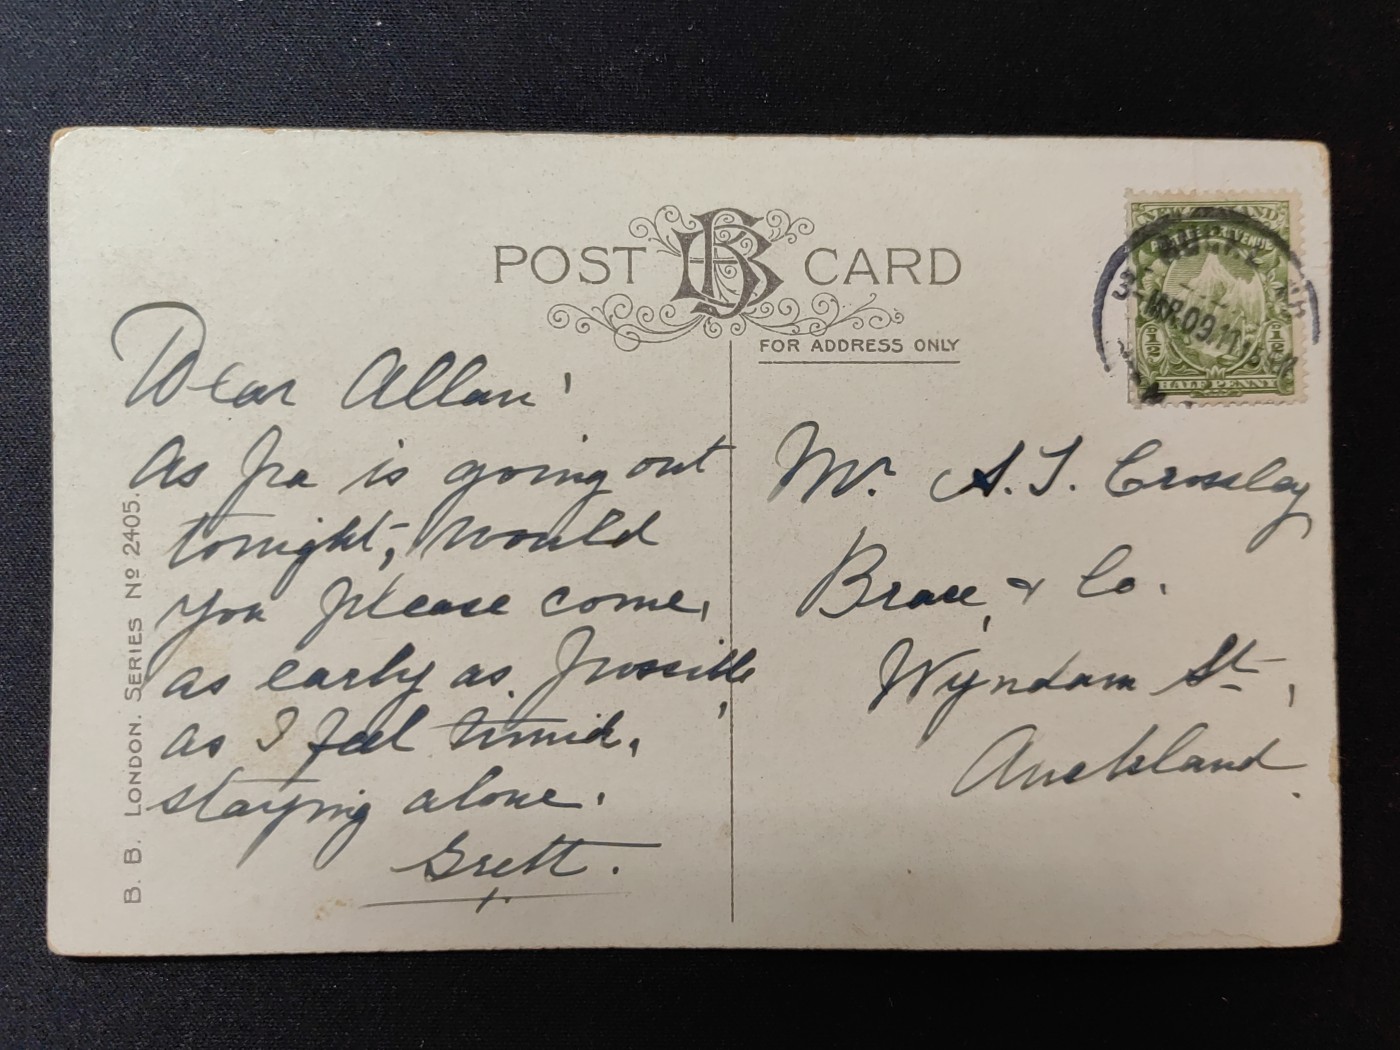 POST CARD
FOR ADDRESS ONLY
NEW ZEALAND
HALF PENNY
AP.09.11
Dear Allan'
As Pa is going out
tonight, would
you please come,
as early as possible,
as I feel timid,
staying alone.
Grett.
Mr. A. J. Crossley
& Co.
Wyndam St,
Auckland.
B. B. LONDON. SERIES No 2405.